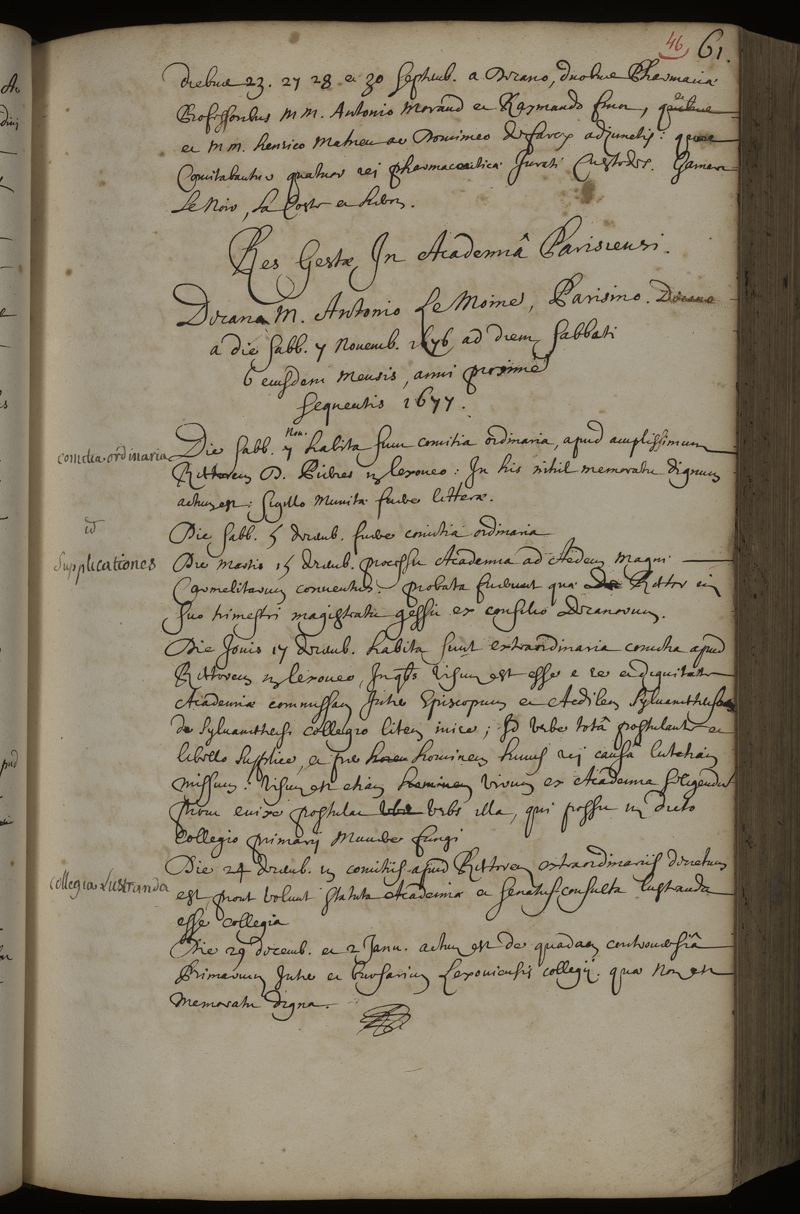 46 61.
diebus 23. 27 28 et 30 Septemb. a Decano, duobus Pharmaciæ
Professoribus M M. Antonio Morand et Raymundo finot, quibus
et M M. henrico Mahieu ac Dominico de farcy adjunctis: quos
Comitabantur quatuor rei pharmaceuticæ Jurati Custodes.
Le Noir, La Coste et
Res Gestæ In Academiâ Parisiensi.
Decano M. Antonio Le Moine, Parisino.
a die Sabb. 7 Novemb. 1676 ad diem Sabbati
6 eiusdem Mensis, anni proximè
sequentis 1677.
comitia ordinaria
Die Sabb. 7 Nov. habita sunt comitia ordinaria, apud amplissimum
Rectorem D. Pieres in lexoveo: In his nihil memoratu dignum
actum est: sigillo munitæ fuere litteræ.
id
Die Sabb. 5 decemb. fuere comitia ordinaria
Supplicationes
Die Martis 15 decemb. processit Academia ad Ædem magni
Carmelitarum conventus. probata fuerunt quæ Rector in
suo trimestri magistratu gessit ex consilio decanorum.
Die Jovis 17 decemb. habita sunt extraordinaria comitia apud
Rectorem in lexoveo, In qbs visum est esse e re et dignitate
Academiæ commissam Inter Episcopum et Aediles Sylvanectenses
de Sylvanectensi collegio litem inire; id urbe totâ postulante et
libello supplice, et per hominem huius rei causâ lutetiam
missum: visum est etiam virum ex Academia seligendum
prout enixe postulat urbs illa, qui possit in dicto
Collegio primarij munere fungi
collegia Lustranda
Die 24 decemb. in comitiis apud Rectorem extraordinariis decretum
est prout volunt statuta Academiæ et senatusconsulta lustranda
esse collegia
Die 29 decemb. et 2 Janu. actum est de quadam controversiâ
Primarium Inter et bursarium Lexoviensis collegij. quæ non est
memoratu digna.